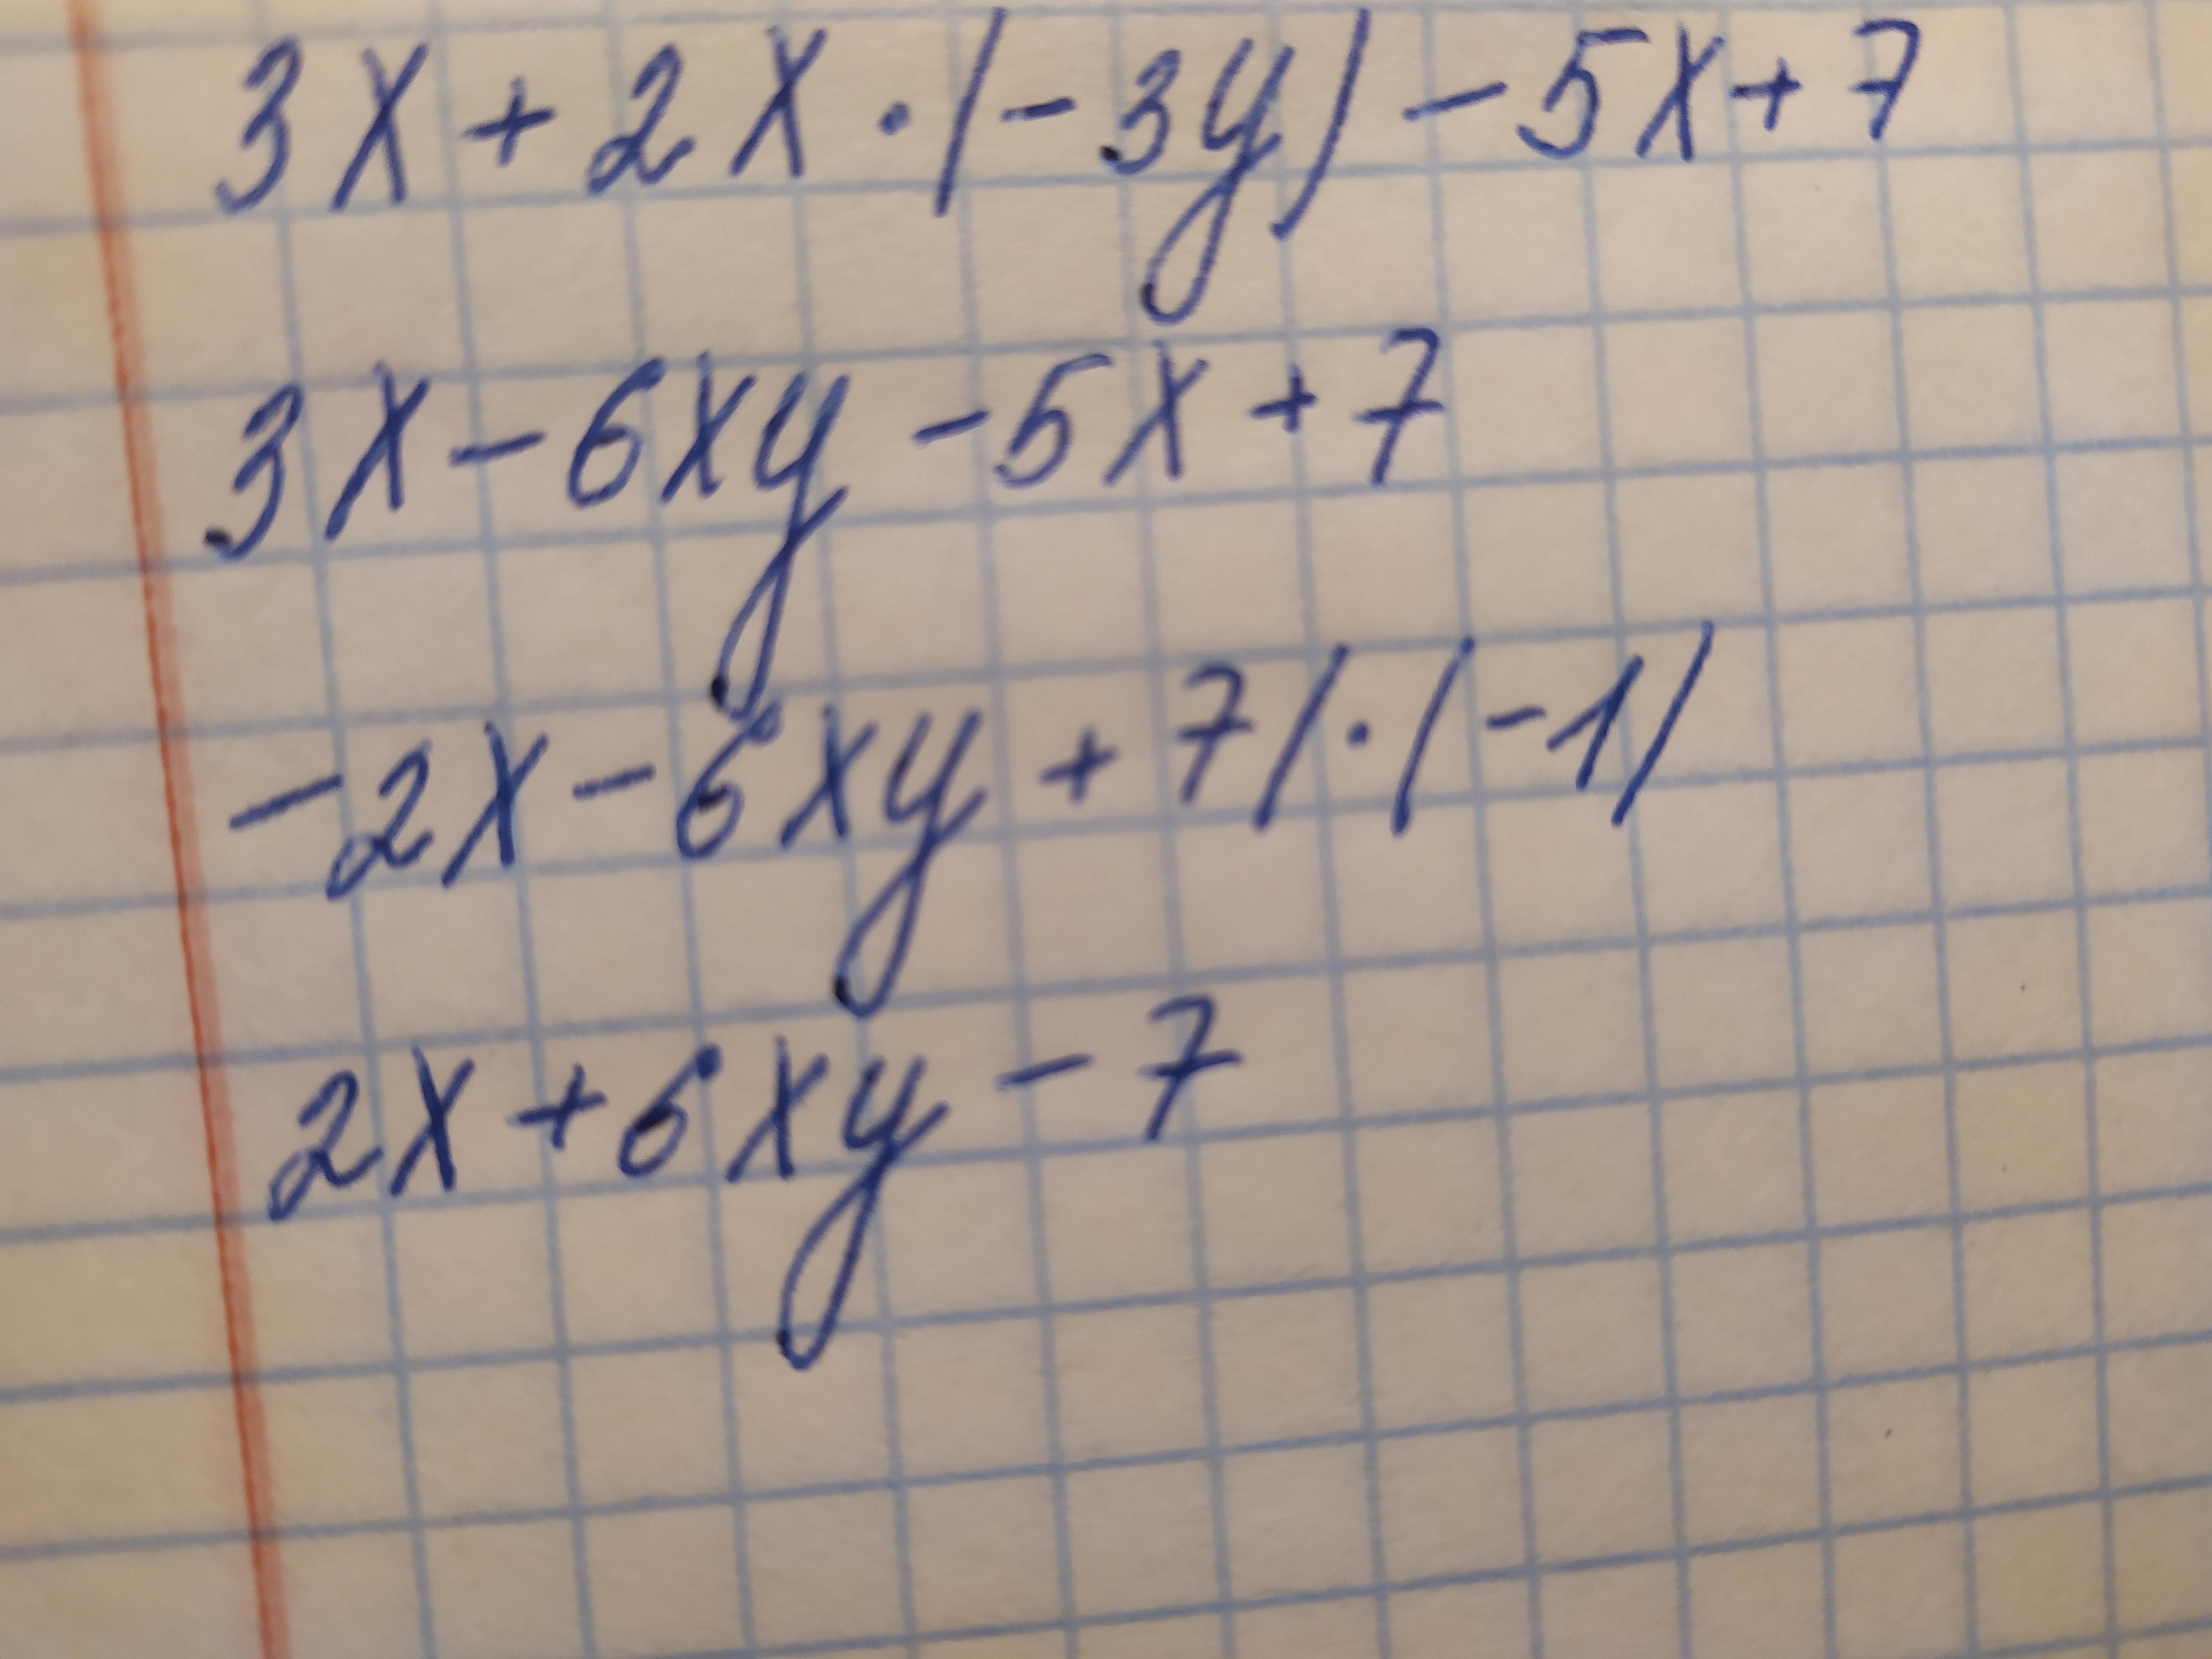 3x + 2x · (-3y) - 5x + 7
3x - 6xy - 5x + 7
-2x - 6xy + 7 | · (-1)
2x + 6xy - 7